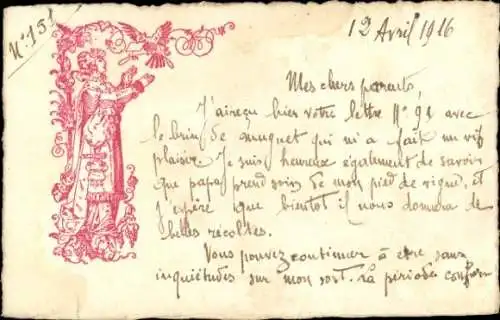 N° 151
12 Avril 1916
Mes chers parents,
J'ai reçu hier votre lettre N° 91 avec
le brin de muguet qui m'a fait un vif
plaisir. Je suis heureux également de savoir
que papa prend soin de mon pied de vigne, et
j'espère que bientot il nous donnera de
belles récoltes.
Vous pouvez continuer à être sans
inquiétudes sur mon sort. La période